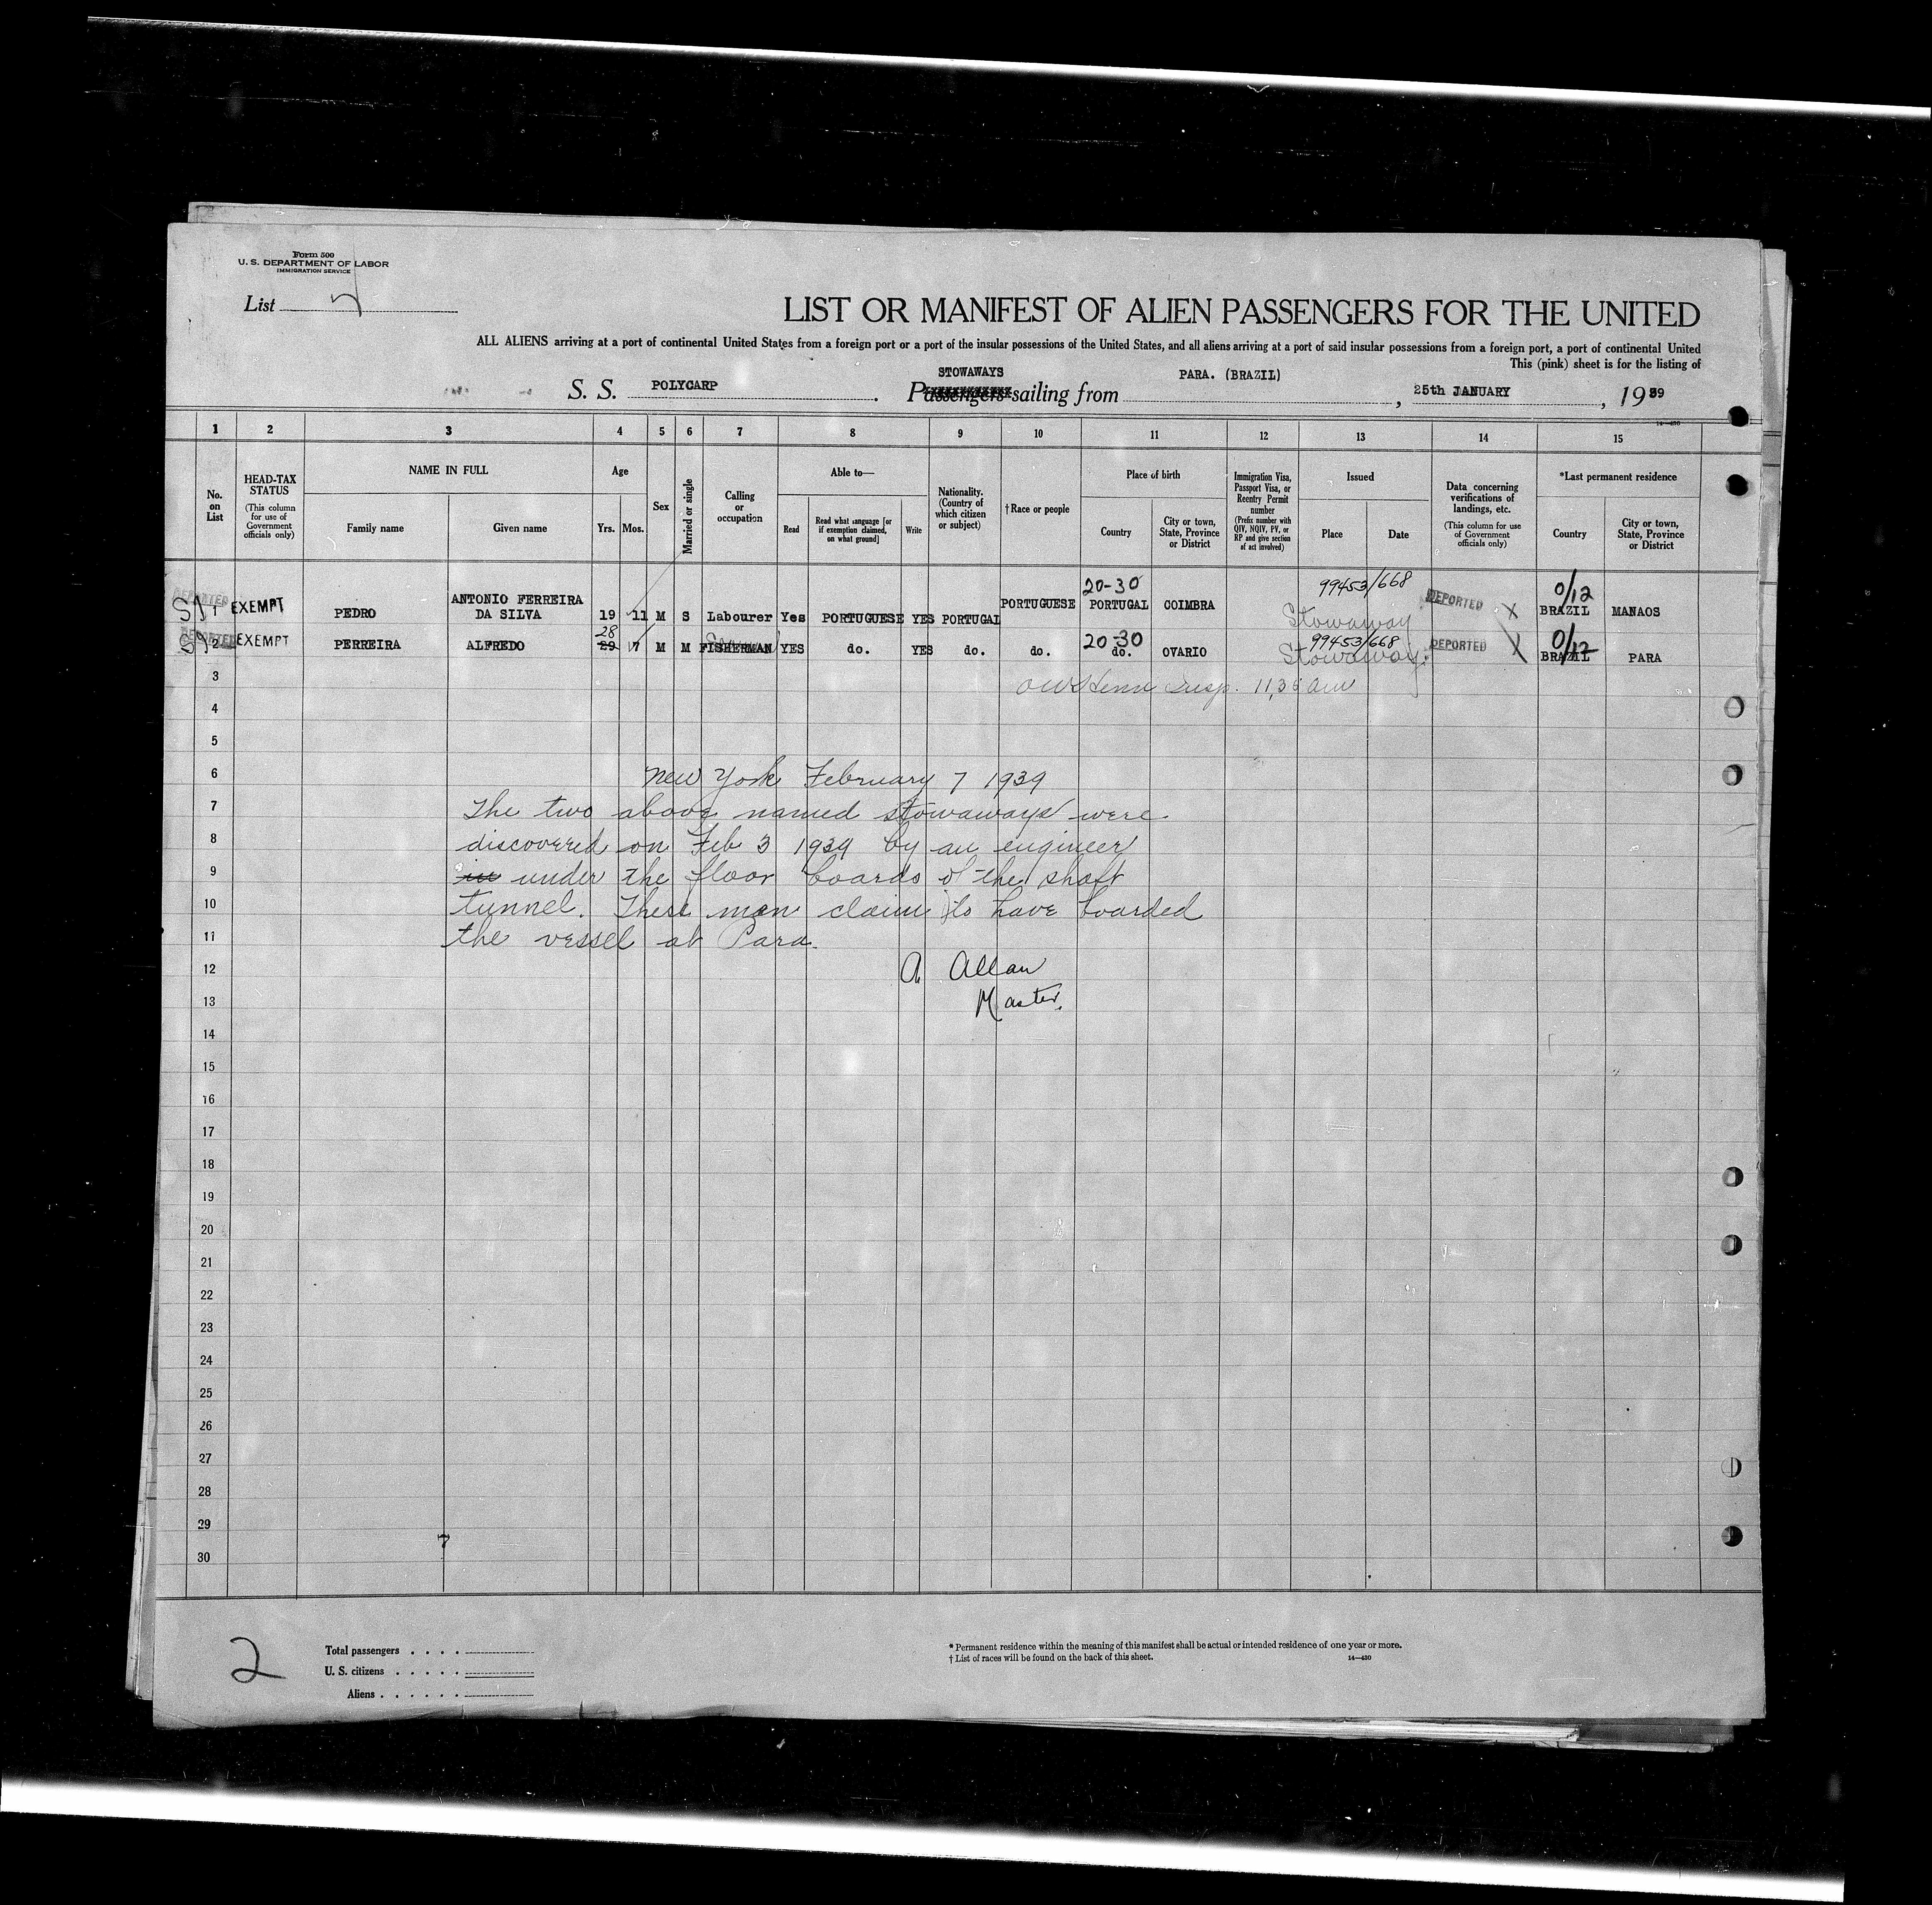 Form 500
U. S. DEPARTMENT OF LABOR
IMMIGRATION SERVICE
List
LIST OR MANIFEST OF ALIEN PASSENGERS FOR THE UNITED
ALL ALIENS arriving at a port of continental United States from a foreign port or a port of the insular possessions of the United States, and all aliens arriving at a port of said insular possessions from a foreign port, a port of continental United
This (pink) sheet is for the listing of
STOWAWAYS
S. S. POLYCARP. Passengers sailing from PARA. (BRAZIL), 25th JANUARY, 1939
14-430
1 2 3 4 5 6 7 8 9 10 11 12 13 14 15
No. on List
HEAD-TAX STATUS (This column for use of Government officials only)
NAME IN FULL
Family name Given name
Age
Yrs. Mos.
Sex
Married or single
Calling or occupation
Able to—
Read Read what language [or if exemption claimed, on what ground] Write
Nationality. (Country of which citizen or subject)
†Race or people
Place of birth
Country City or town, State, Province or District
Immigration Visa, Passport Visa, or Reentry Permit number (Prefix number with QIV, NQIV, PV, or RP and give section of act involved)
Issued
Place Date
Data concerning verifications of landings, etc. (This column for use of Government officials only)
*Last permanent residence
Country City or town, State, Province or District
20-30 99453/668 0/12
DEPORTED 1 EXEMPT PEDRO ANTONIO FERREIRA DA SILVA 19 11 M S Labourer Yes PORTUGUESE YES PORTUGAL PORTUGUESE PORTUGAL COIMBRA Stowaway DEPORTED X BRAZIL MANAOS
28 20-30 99453/668 0/12
DEPORTED 2 EXEMPT PERREIRA ALFREDO 29 7 M M FISHERMAN YES do. YES do. do. do. OVARIO Stowaway DEPORTED X BRAZIL PARA
3 Insp. 11,35 am
4
5
6 New York February 7 1939
7 The two above named stowaways were
8 discovered on Feb 3 1939 by an engineer
9 in under the floor boards of the shaft
10 tunnel. These men claim to have boarded
11 the vessel at Para.
12 A Allan
13 Master.
14
15
16
17
18
19
20
21
22
23
24
25
26
27
28
29
7
30
2
Total passengers . . . .
U. S. citizens . . . . .
Aliens . . . . . .
* Permanent residence within the meaning of this manifest shall be actual or intended residence of one year or more.
† List of races will be found on the back of this sheet.
14—430